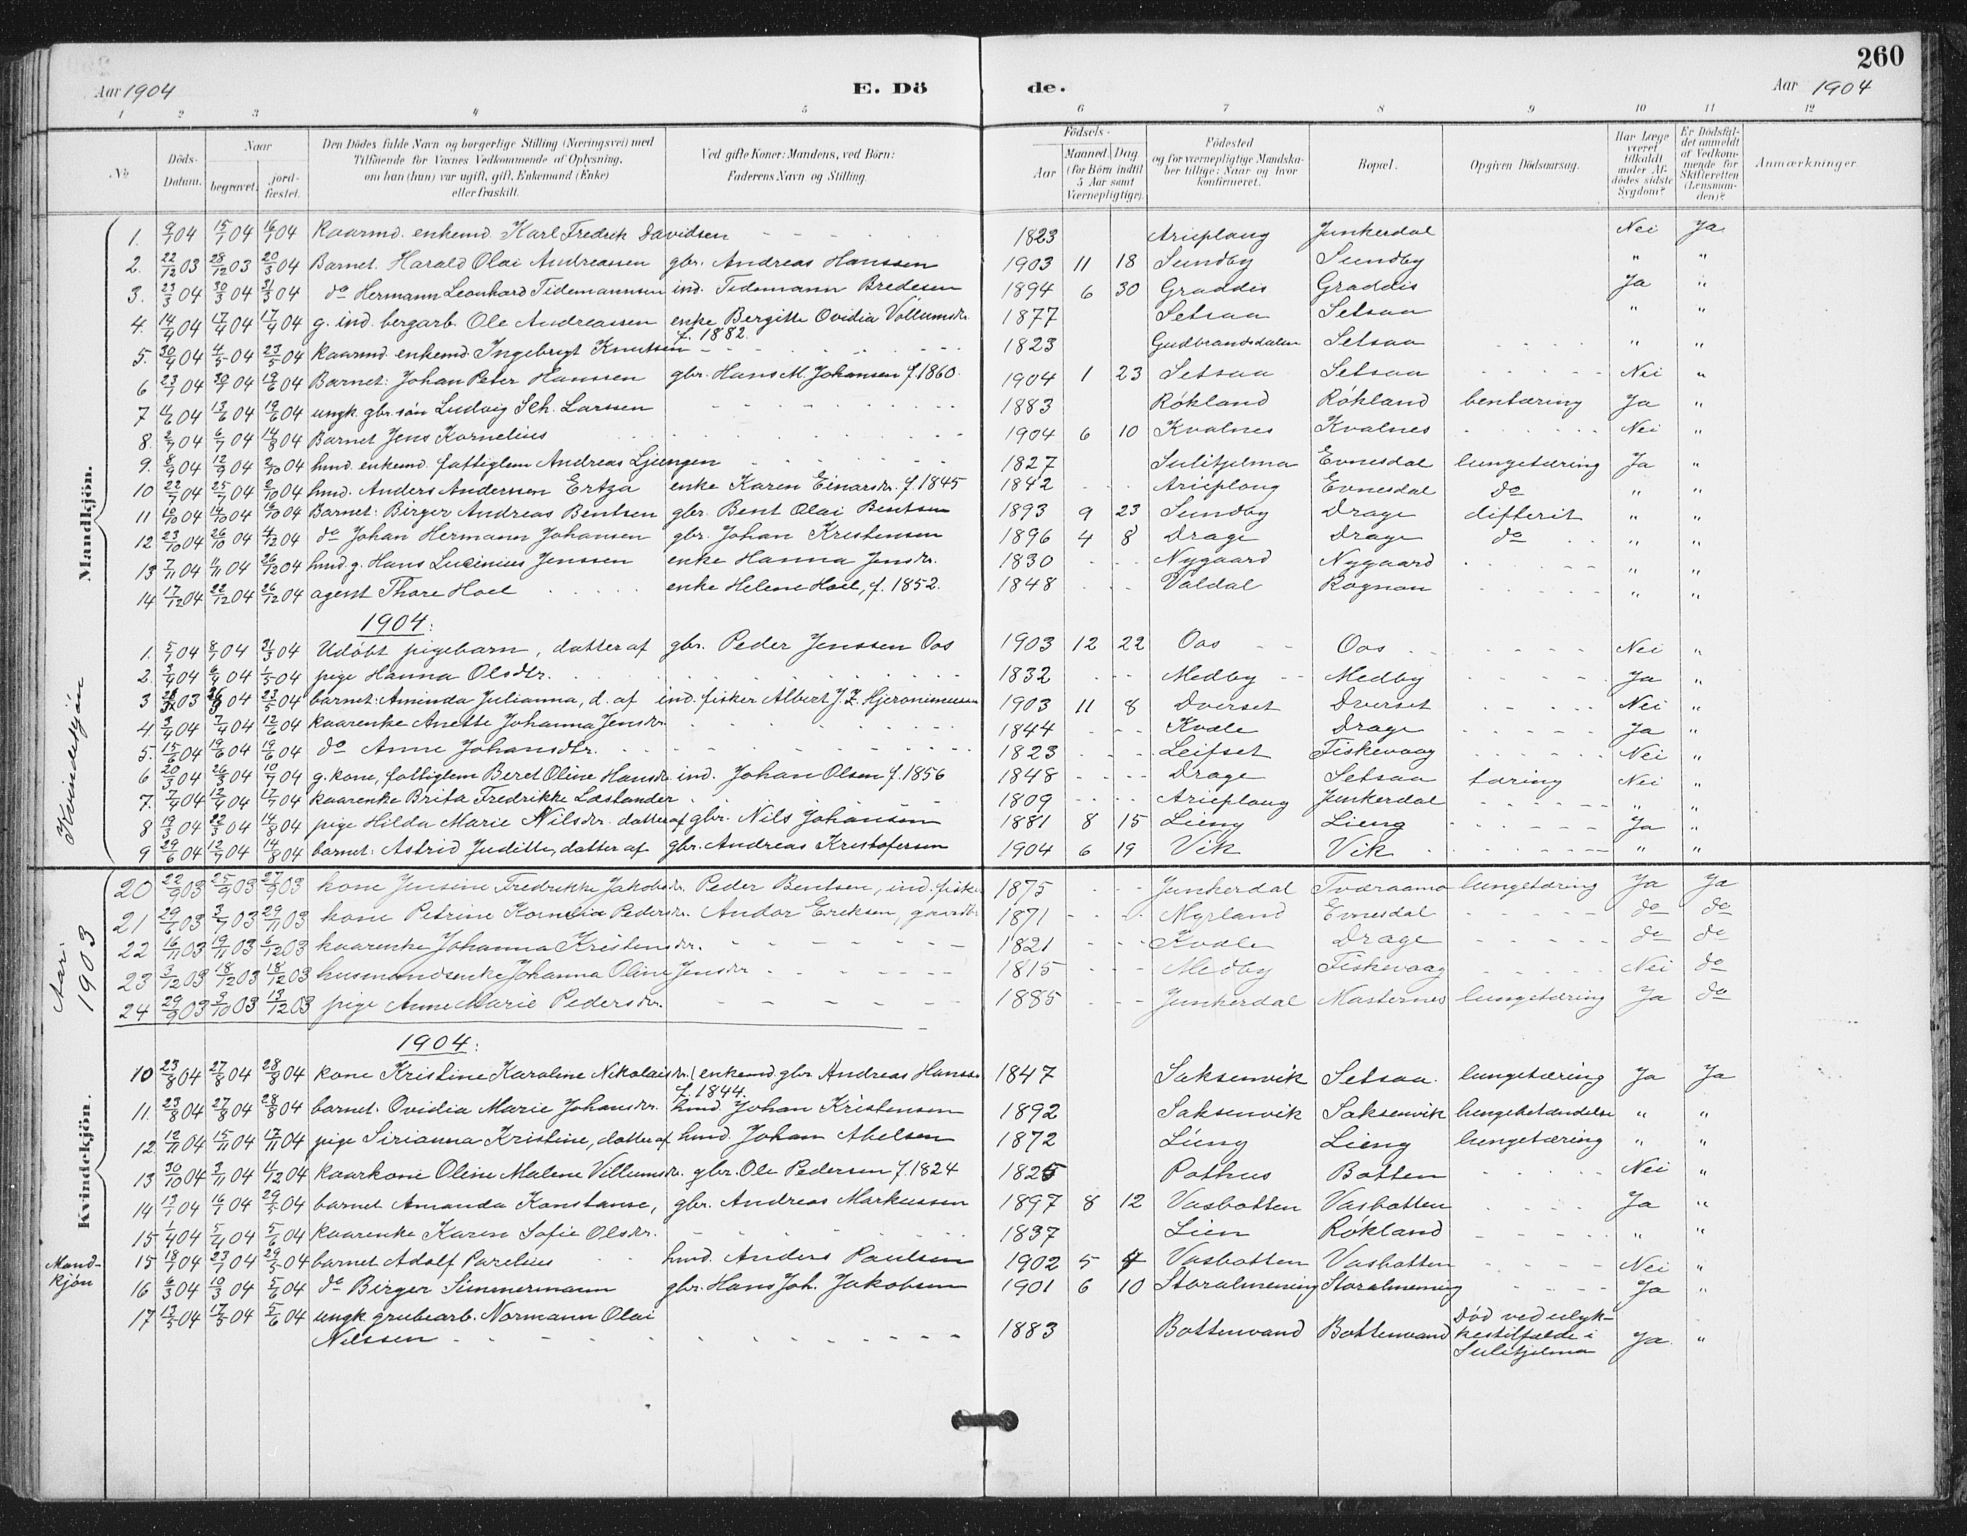 260
Aar 1904 E. Dö de. Aar 1904
1 2 3 4 5 6 7 8 9 10 11 12
No Döds-Datum. Naar begravet. jord-fæstet. Den Dödes fulde Navn og borgerlige Stilling (Næringsvei) med Tilföiende for Voxnes Vedkommende af Oplysning, om han (hun) var ugift, gift, Enkemand (Enke) eller fraskilt. Ved gifte Koner: Mandens, ved Börn: Faderens Navn og Stilling. Födsels- Aar Maaned Dag (for Börn indtil 5 Aar samt Værnepligtige). Födested og for værnepligtige Mandskaber tillige: Naar og hvor konfirmeret. Bopæl. Opgiven Dödsaarsag. Har Læge været tilkaldt under Afdödes sidste Sygdom? Er Dödsfaldet anmeldt af Vedkommende for Skifteretten (Lensmanden)? Anmærkninger.
Mandkjön.
1. 9/1 04 15/1 04 16/1 04 Kaarmd. enkemd Karl Fredrik Davidsen - - - 1823 Arieplong Junkerdal Nei Ja
2. 22/12 03 28/12 03 20/3 04 Barnet. Harald Olai Andreassen gbr. Andreas Hanssen 1903 11 18 Sundby Sundby " "
3. 23/3 04 30/3 04 31/3 04 do Hermann Leonhard Tidemannsen ind. Tidemann Bredesen 1894 6 30 Graddis Graddis Ja "
4. 14/4 04 17/4 04 17/4 04 g. ind. bergarb. Ole Andreassen enke Bergitte Ovidia Vollumsdr. f. 1882. 1877 Setsaa Setsaa " "
5. 30/4 04 4/5 04 23/5 04 kaarmd. enkemd Ingebrigt Knutsen - - 1823 Gudbrandsdalen Setsaa " "
6 23/4 04 04 19/6 04 Barnet: Johan Peter Hanssen gbr. Hans M. Johansen f. 1860. 1904 1 23 Setsaa Setsaa Nei "
7 6/6 04 13/6 04 19/6 04 ungk. gbr. søn Ludvig Sch. Larssen - - 1883 Røkland Røkland bentæring Ja "
8. 2/7 04 6/7 04 14/8 04 Barnet Jens Kornelius 1904 6 10 Kvalnes Kvalnes Nei "
9. 8/9 04 12/9 04 2/10 04 hmd. enkemd. fattiglem Andreas Ljungen - - 1827 Sulitjelma Evnesdal lungetæring Ja "
10 22/7 04 25/7 04 2/10 04 hmd. Anders Anderssen Ertza enke Karen Einarsdr. f. 1845 1842 Arieplong Evnesdal do " "
11 10/10 04 14/10 04 16/10 04 Barnet: Birger Andreas Bentsen gbr. Bent Olai Bentsen 1893 9 23 Sundby Drage difterit " "
12 23/10 04 26/10 04 4/12 04 do Johan Hermann Johansen gbr. Johan Kristensen 1896 4 8 Drage Drage do " "
13 7/11 04 11/11 04 26/12 04 hmd. g. Hans Lucinius Jenssen enke Hanna Jensdr. 1830 Nygaard Nygaard " "
14 17/12 04 22/12 04 26/12 04 agent Thore Hoel enke Helene Hoel, f. 1852. 1848 Valdal Rognan " "
1904:
Kvindekjøn
1. 5/1 04 8/1 04 31/3 04 Udøbt pigebarn, datter af gbr. Peder Jenssen Oos 1903 12 22 Oos Oos Nei "
2. 3/4 04 6/4 04 1/5 04 pige Hanna Olsdtr. 1832 Medby Medby Ja "
3 03 04 23/5 04 barnet: Aminda Julianna, d. af ind. fisker Albert J. Z. Hjeronimussen 1903 11 8 Dverset Dverset Nei "
4 3/4 04 7/4 04 12/6 04 kaarenke Anette Johanna Jensdr. 1844 Kvæle Drage Ja "
5. 15/6 04 19/6 04 19/6 04 do Anne Johansdtr. 1823 Leifset Fiskevaag Nei "
6 20/3 04 26/3 04 10/7 04 g. kone, fattiglem Beret Oline Hansdr. ind. Johan Olsen f. 1856 1848 Drage Setsaa tæring Nei "
7. 7/4 04 12/4 04 17/7 04 kaarenke Brita Fredrikke Læstander 1809 Arieplong Junkerdal " "
8 19/3 04 22/3 04 14/8 04 pige Hilda Marie Nilsdr. datter af gbr. Nils Johansen 1881 8 15 Lieng Lieng Ja "
9 29/6 04 12/7 04 14/8 04 barnet: Astrid Juditte, datter af gbr. Andreas Kristofersen 1904 6 19 Vik Vik " "
Aar: 1903
20 22/9 03 25/9 03 27/9 03 kone Jensine Fredrikke Jakobsdr. Peder Bentsen, ind. fisker 1875 Junkerdal Tværaamo lungetæring Ja Ja
21 29/6 03 3/7 03 29/11 03 kone Petrine Kornelia Pedersdr. Andor Eriksen, gaardbr. 1871 Myrland Evnesdal do do
22 16/11 03 19/11 03 6/12 03 kaarenke Johanna Kristensdr. 1821 Kvæle Drage do do
23 3/12 03 18/12 03 18/12 03 husmandsenke Johanna Oline Jensdr 1815 Medby Fiskevaag Nei do
24 29/9 03 2/10 03 13/12 03 pige Anne Marie Pedersdr. 1885 Junkerdal Masternes lungetæring Ja do
1904:
Kvindekjön.
10 23/8 04 27/8 04 28/8 04 kone Kristine Karoline Nikolaisdr. (enkemd. gbr. Andreas Hanssen f. 1844. 1847 Saksenvik Setsaa. lungetæring Ja Ja
11. 23/8 04 27/8 04 28/8 04 barnet: Ovidia Marie Johansdr. hmd. Johan Kristensen 1892 Saksenvik Saksenvik lungebetændelse " "
12 12/11 04 15/11 04 17/11 04 pige Sirianna Kristine, datter af hmd. Johan Abelsen 1872 Lieng Lieng lungetæring " "
13 30/10 04 3/11 04 4/12 04 kaarkone Oline Malene Villumsdr. gbr. Ole Pedersen f. 1824 1825 Pothus Botten Nei "
14 13/1 04 16/1 04 29/5 04 barnet Amanda Konstanse, gbr. Andreas Markussen 1897 8 12 Vasbotten Vasbotten Ja "
15 1/4 04 5/4 04 5/6 04 kaarenke Karen Sofie Olsdr. 1837 Lien Røkland " "
Mandkjön
15 18/1 04 23/1 04 29/5 04 barnet Adolf Parelius hmd. Anders Paulsen 1902 5 Vasbotten Vasbotten Nei "
16 6/3 04 10/3 04 5/6 04 do Birger Simmermann gbr. Hans Joh. Jakobsen 1901 6 10 Storalmening Storalmening Ja "
17 13/5 04 17/5 04 5/6 04 ungk. grubearb. Normann Olai Nilssen 1883 Bottenvand Bottenvand Død ved ulykkestilfælde i Sulitjelma Ja. "